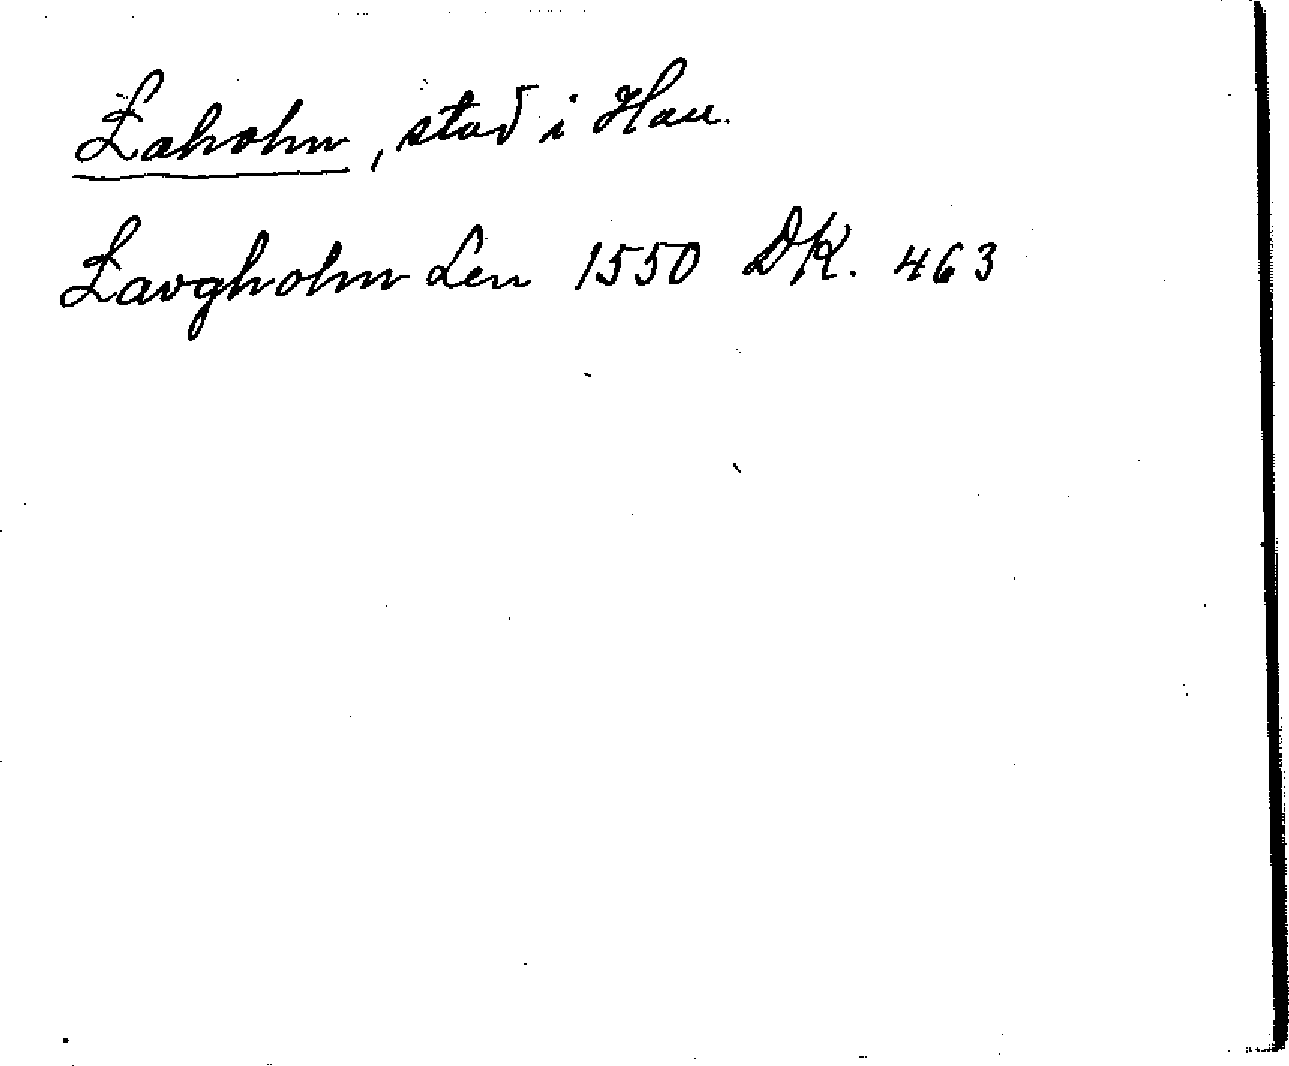 Laholm, stad i Hall.
Lavgholm Len 1550 DK. 463